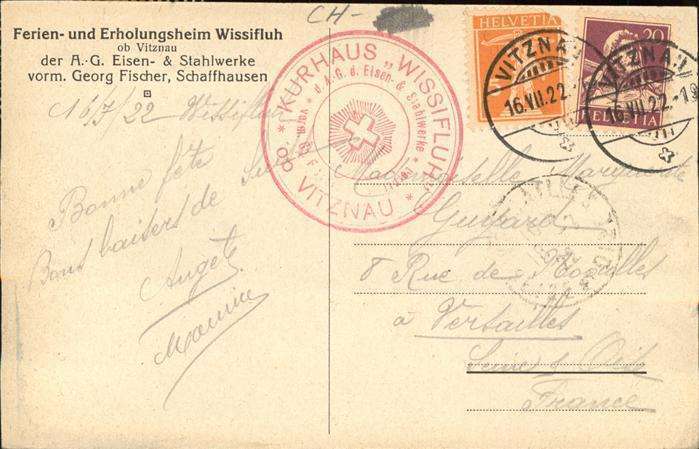 CH-
Ferien- und Erholungsheim Wissifluh
ob Vitznau
der A.-G. Eisen- & Stahlwerke
vorm. Georg Fischer, Schaffhausen
16.7/22 Wissifluh
Bonne fête
Bons baisers de Suisse
Angèle
Maurice
"KURHAUS" WISSIFLUH"
ob VITZNAU
d. A.-G. d. Eisen- & Stahlwerke
HELVETIA
20
HELVETIA
VITZNAU
16.VII.22.
VITZNAU
16.VII.22.
Mademoiselle Marguerite
Guyard
8 Rue de Noailles
à Versailles
Seine & Oise
France